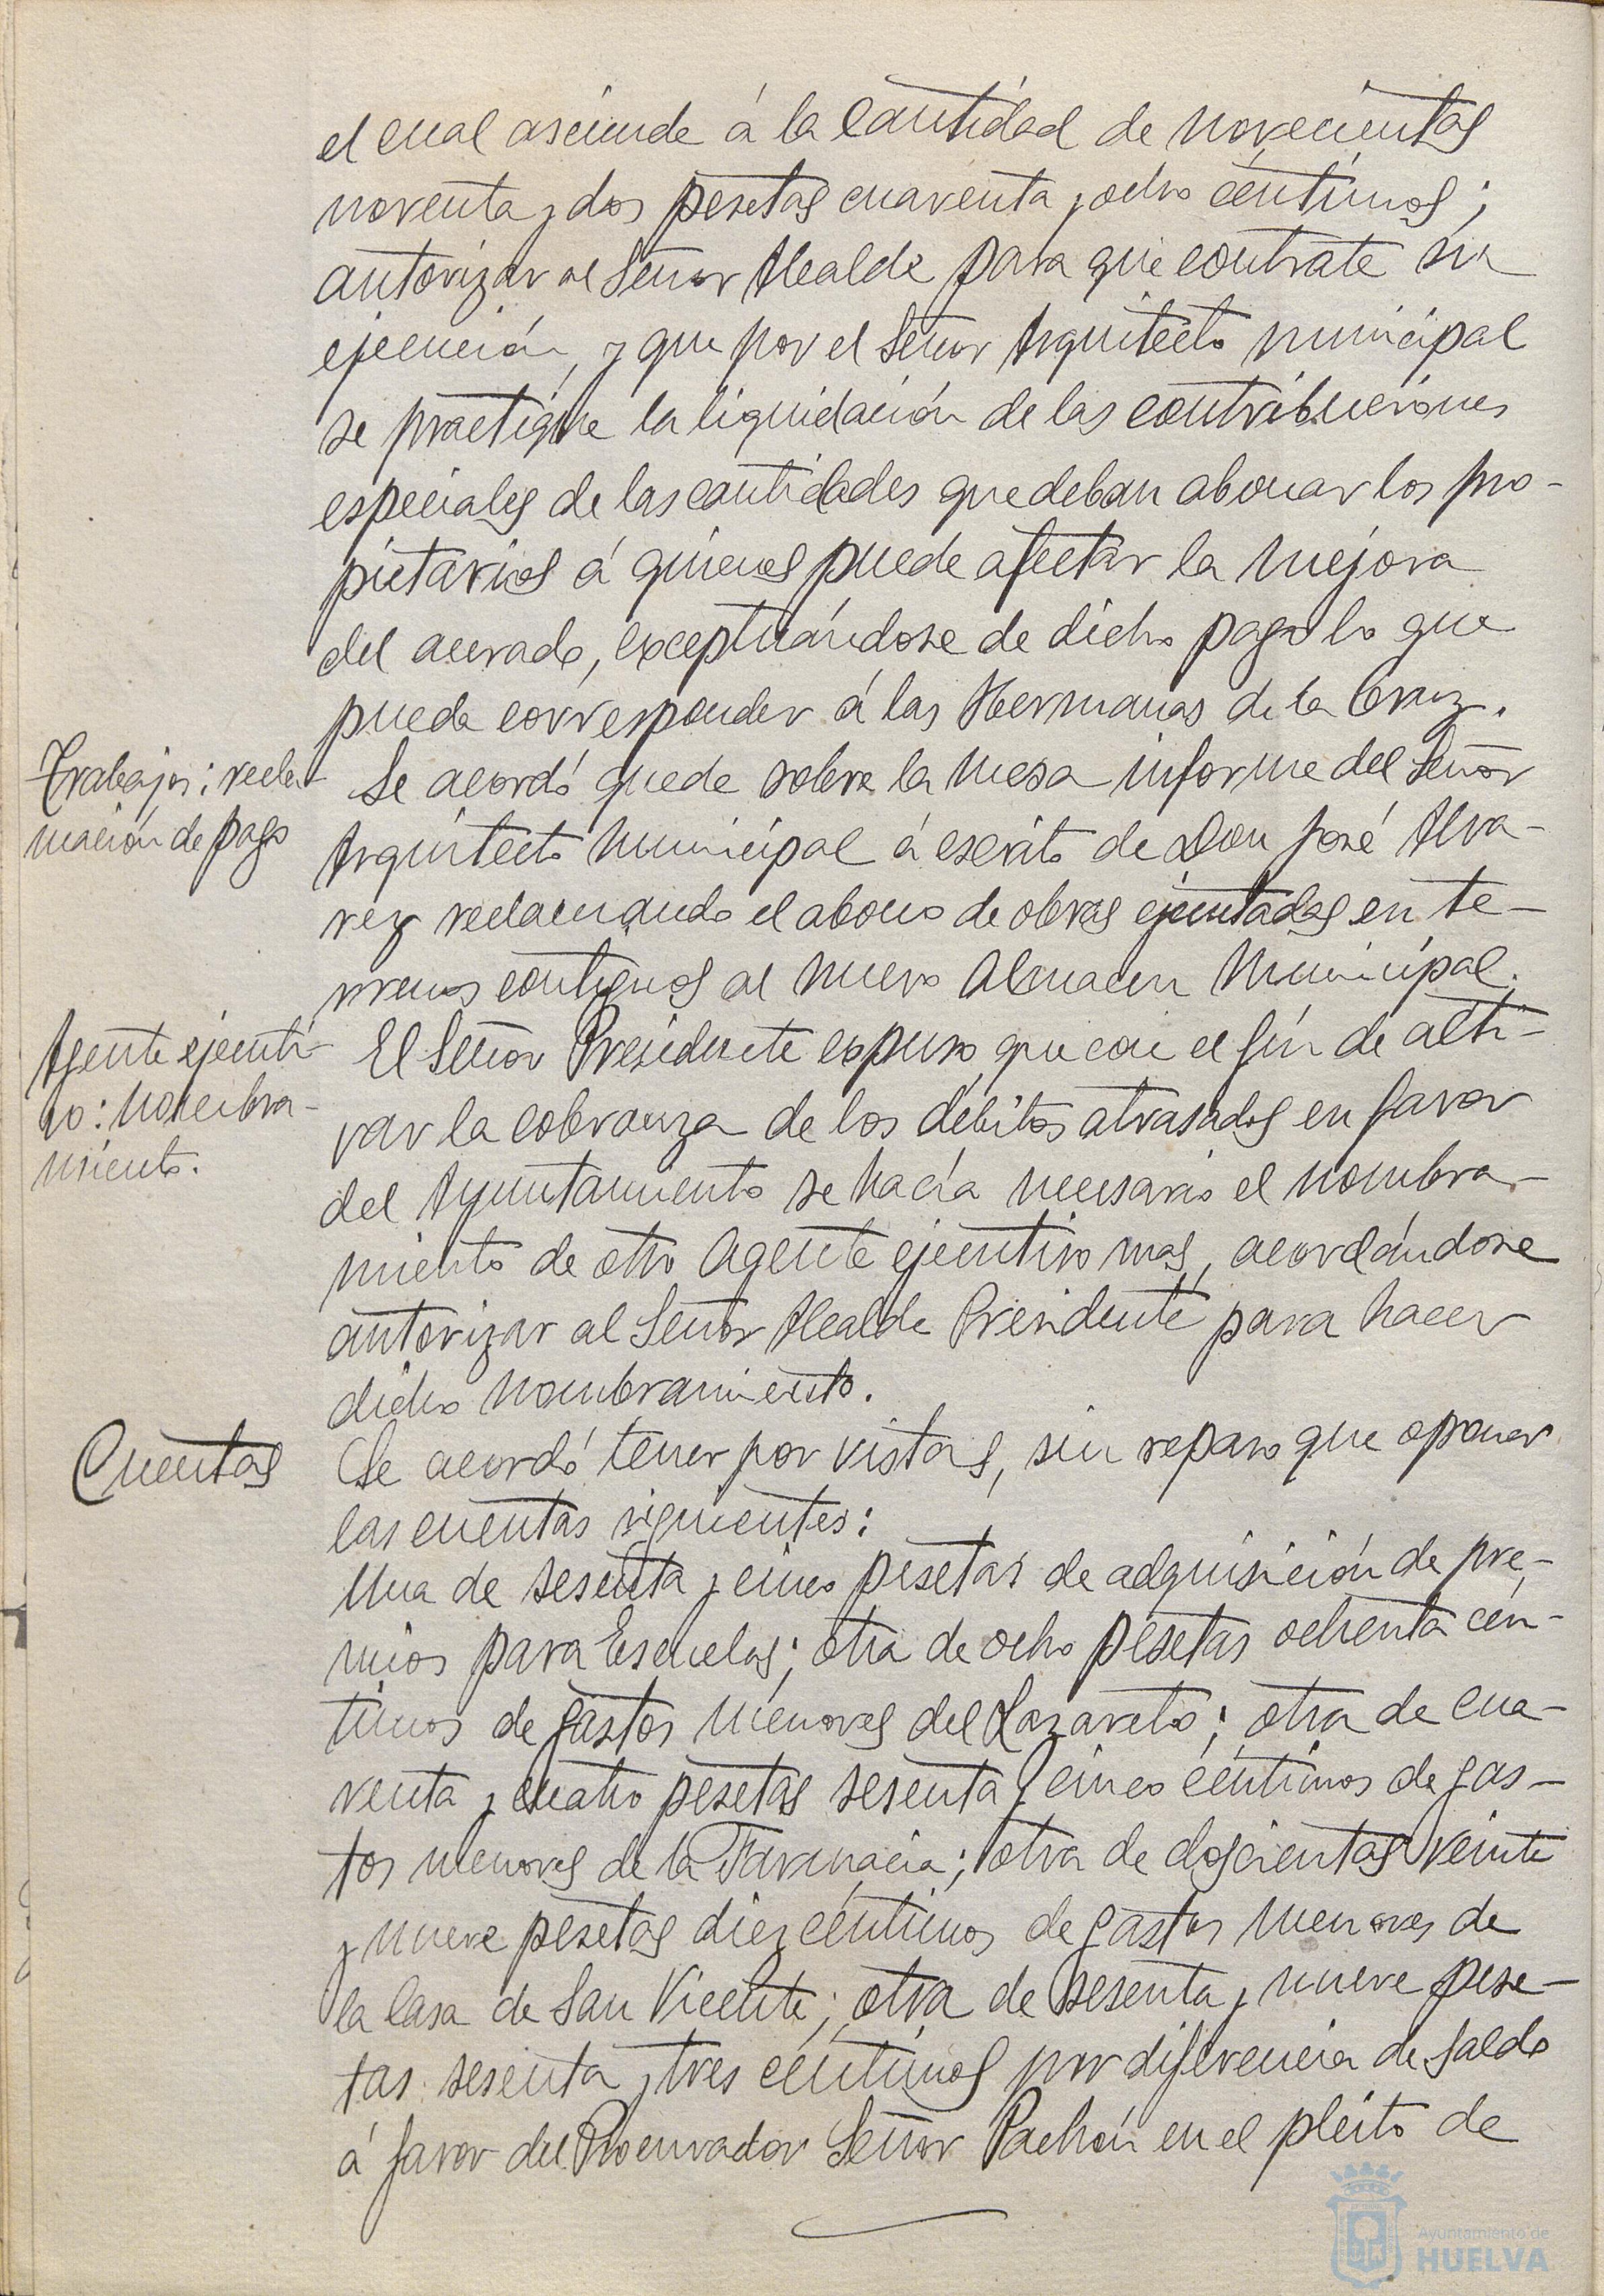 el cual asciende á la Cantidad de novecientas
noventa y dos pesetas cuarenta y ocho céntimos;
autorizar al Señor Alcalde para que contrate su
ejecución, y que por el Señor Arquitecto municipal
se practique la liquidación de las contribuciones
especiales de las cantidades que deban abonar los pro-
pietarios á quienes puede afectar la mejora
del acerado, exceptuándose de dicho pago lo que
puede corresponder á las Hermanas de la Cruz.
Trabajos: recla-
mación de pago
Se acordó quede sobre la mesa informe del Señor
Arquitecto Municipal á escrito de Don José Alva-
rez reclamando el abono de obras ejecutadas en te-
rrenos contiguos al nuevo Almacen Municipal.
Agente ejecuti-
vo: nombra-
miento.
El Señor Presidente expuso que con el fín de acti-
var la cobranza de los débitos atrasados en favor
del Ayuntamiento se hacía necesario el nombra-
miento de otro Agente ejecutivo mas, acordándose
autorizar al Señor Alcalde Presidente para hacer
dicho nombramiento.
Cuentas
Se acordó tener por vistas, sin reparo que oponer
las cuentas siguientes:
Una de sesenta y cinco pesetas de adquisición de pre-
mios para Escuelas; otra de ocho pesetas ochenta cén-
timos de gastos menores del Lazareto; otra de cua-
renta y cuatro pesetas sesenta y cinco céntimos de gas-
tos menores de la Farmacia; otra de doscientas veinte
y nueve pesetas diez céntimos de gastos menores de
la Casa de San Vicente; otra de sesenta y nueve pese-
tas sesenta y tres céntimos por diferencia de saldo
á favor del Procurador Señor Pachón en el pleito de
Ayuntamiento de
HUELVA